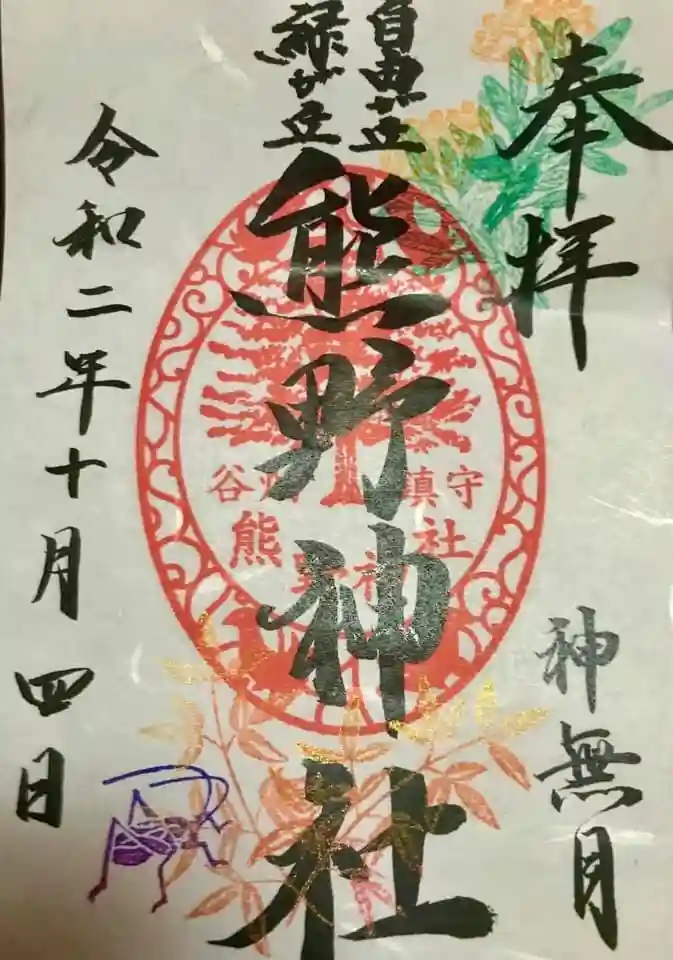 奉拝
神無月
自由が丘
緑が丘
熊野神社
守鎮
谷
熊野神社
令和二年十月四日